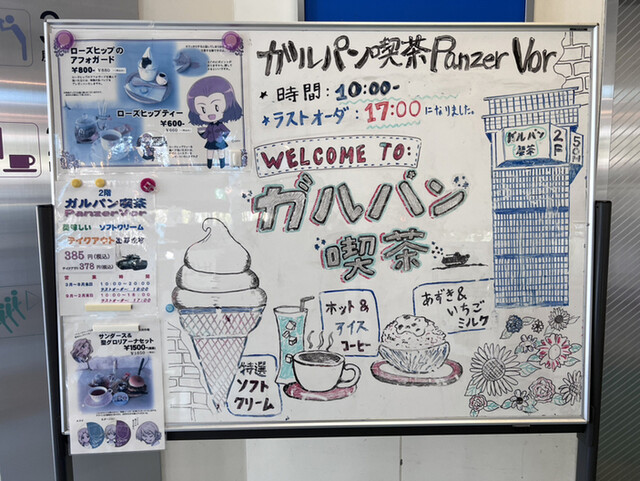 ローズヒップの
アフォガード
¥800-
ローズヒップティー
¥600-
ガルパン喫茶 Panzer Vor
* 時間: 10:00-
*ラストオーダ: 17:00になりました。
WELCOME TO:
ガルパン
喫茶
ガルパン
喫茶
2F
2階
ガルパン喫茶
Panzer Vor
美味しい ソフトクリーム
テイクアウト
385円(税込)
378円(税込)
営業時間
10:00~20:00
ラストオーダー
10:00~18:00
ラストオーダー 17:00
サンダース&
¥1500-
特選
ソフト
クリーム
ホット&
アイス
コーヒー
あずき&
いちご
ミルク